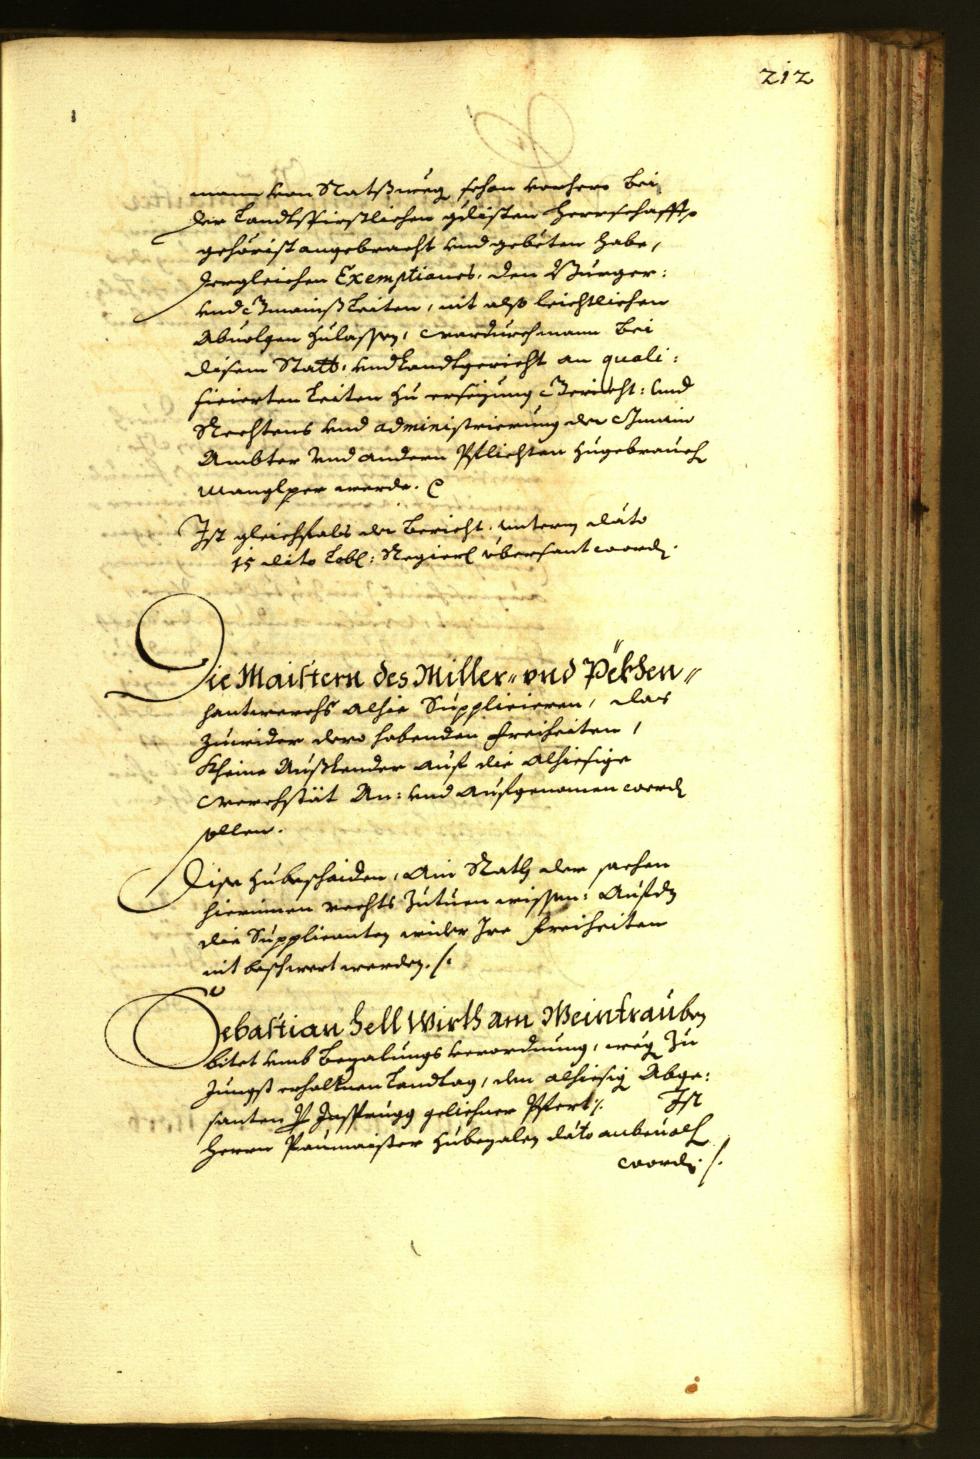 212
mann von Ratsweg schon vorhero bei
der Landtsfürstlichen gdisten Herrschafft
gehorist angebracht und gebeten habe,
dergleichen Exemptiones, den Burger:
und Inwohnß Leiten, nit also leichtlichen
Ervolgen zulassen, wardurch mann bei
disem Statt: und Landtgericht an quali:
ficierten Leiten zu ersezung Gericht: und
Rechtens und administrierung der Gmain
Ämbter und andern Pflichten zugebrauch
manglper werde.
Ist gleichsfals der Bericht unterm dato
15 dito Lobl: Regier übersant word.
Die Maistern des Miller= und Pekhen=
hantwerchs alhie Supplicieren, das
zuwider dero habenden Freiheiten,
kheine Außlender auf die alhiesige
werchstät An: und aufgenomen werd
sollen.
Dise zubeschaiden, Ain Rath der sachen
hierinnen rechts zutuen wissen: Auf
die Supplicanten wider Ire Freiheiten
nit beschwert werden ./.
Sebastian Hell Wirth am Weintrauben
bitet umb Bezalungs verordnung, weg zu
Jungst erhaltnen Landtag, den alhiesig Abge:
santen Insprugg geliehner Pfert ./. Ist
Herrn Paumaister zubezalen dato anbevolch
word ./.